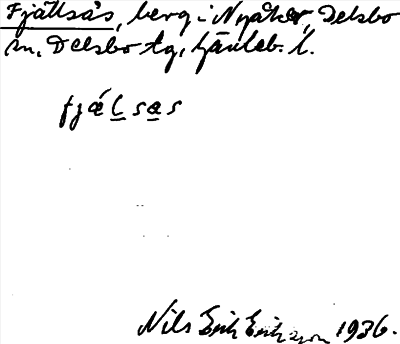 Fjällsås, berg i Nyåker, Delsbo
sn, Delsbo tg, Gävleb. l.
fjálsas
Nils Erik Eriksson 1936.